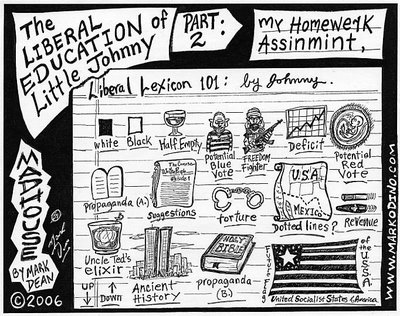 The
LIBERAL
EDUCATION of
Little Johnny
PART:
2
my Homewerk
Assinmint,
Liberal Lexicon 101: by Johnny.
white
Black
Half Empty
Potential
Blue
Vote
FREEDOM
Fighter
Deficit
Potential
Red
Vote
propaganda (A.)
suggestions
torture
U.S.A.
MEXICO
Dotted lines?
Revenue
Uncle Ted's
elixir
Ancient
History
HOLY
BIBLE
propaganda
(B.)
Future Flag
of the U.S.S.A.
United Socialist States of America
UP
Down
MADHOUSE
BY MARK
DEAN
©2006
WWW.MARKODINO.COM